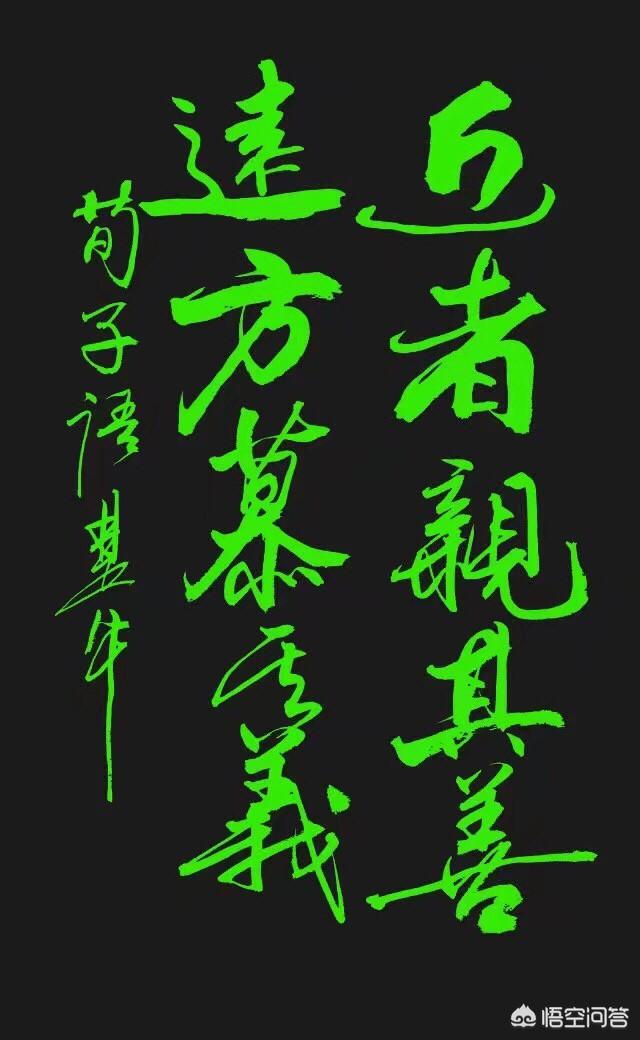 近者親其善
遠方慕其義
荀子語
悟空问答